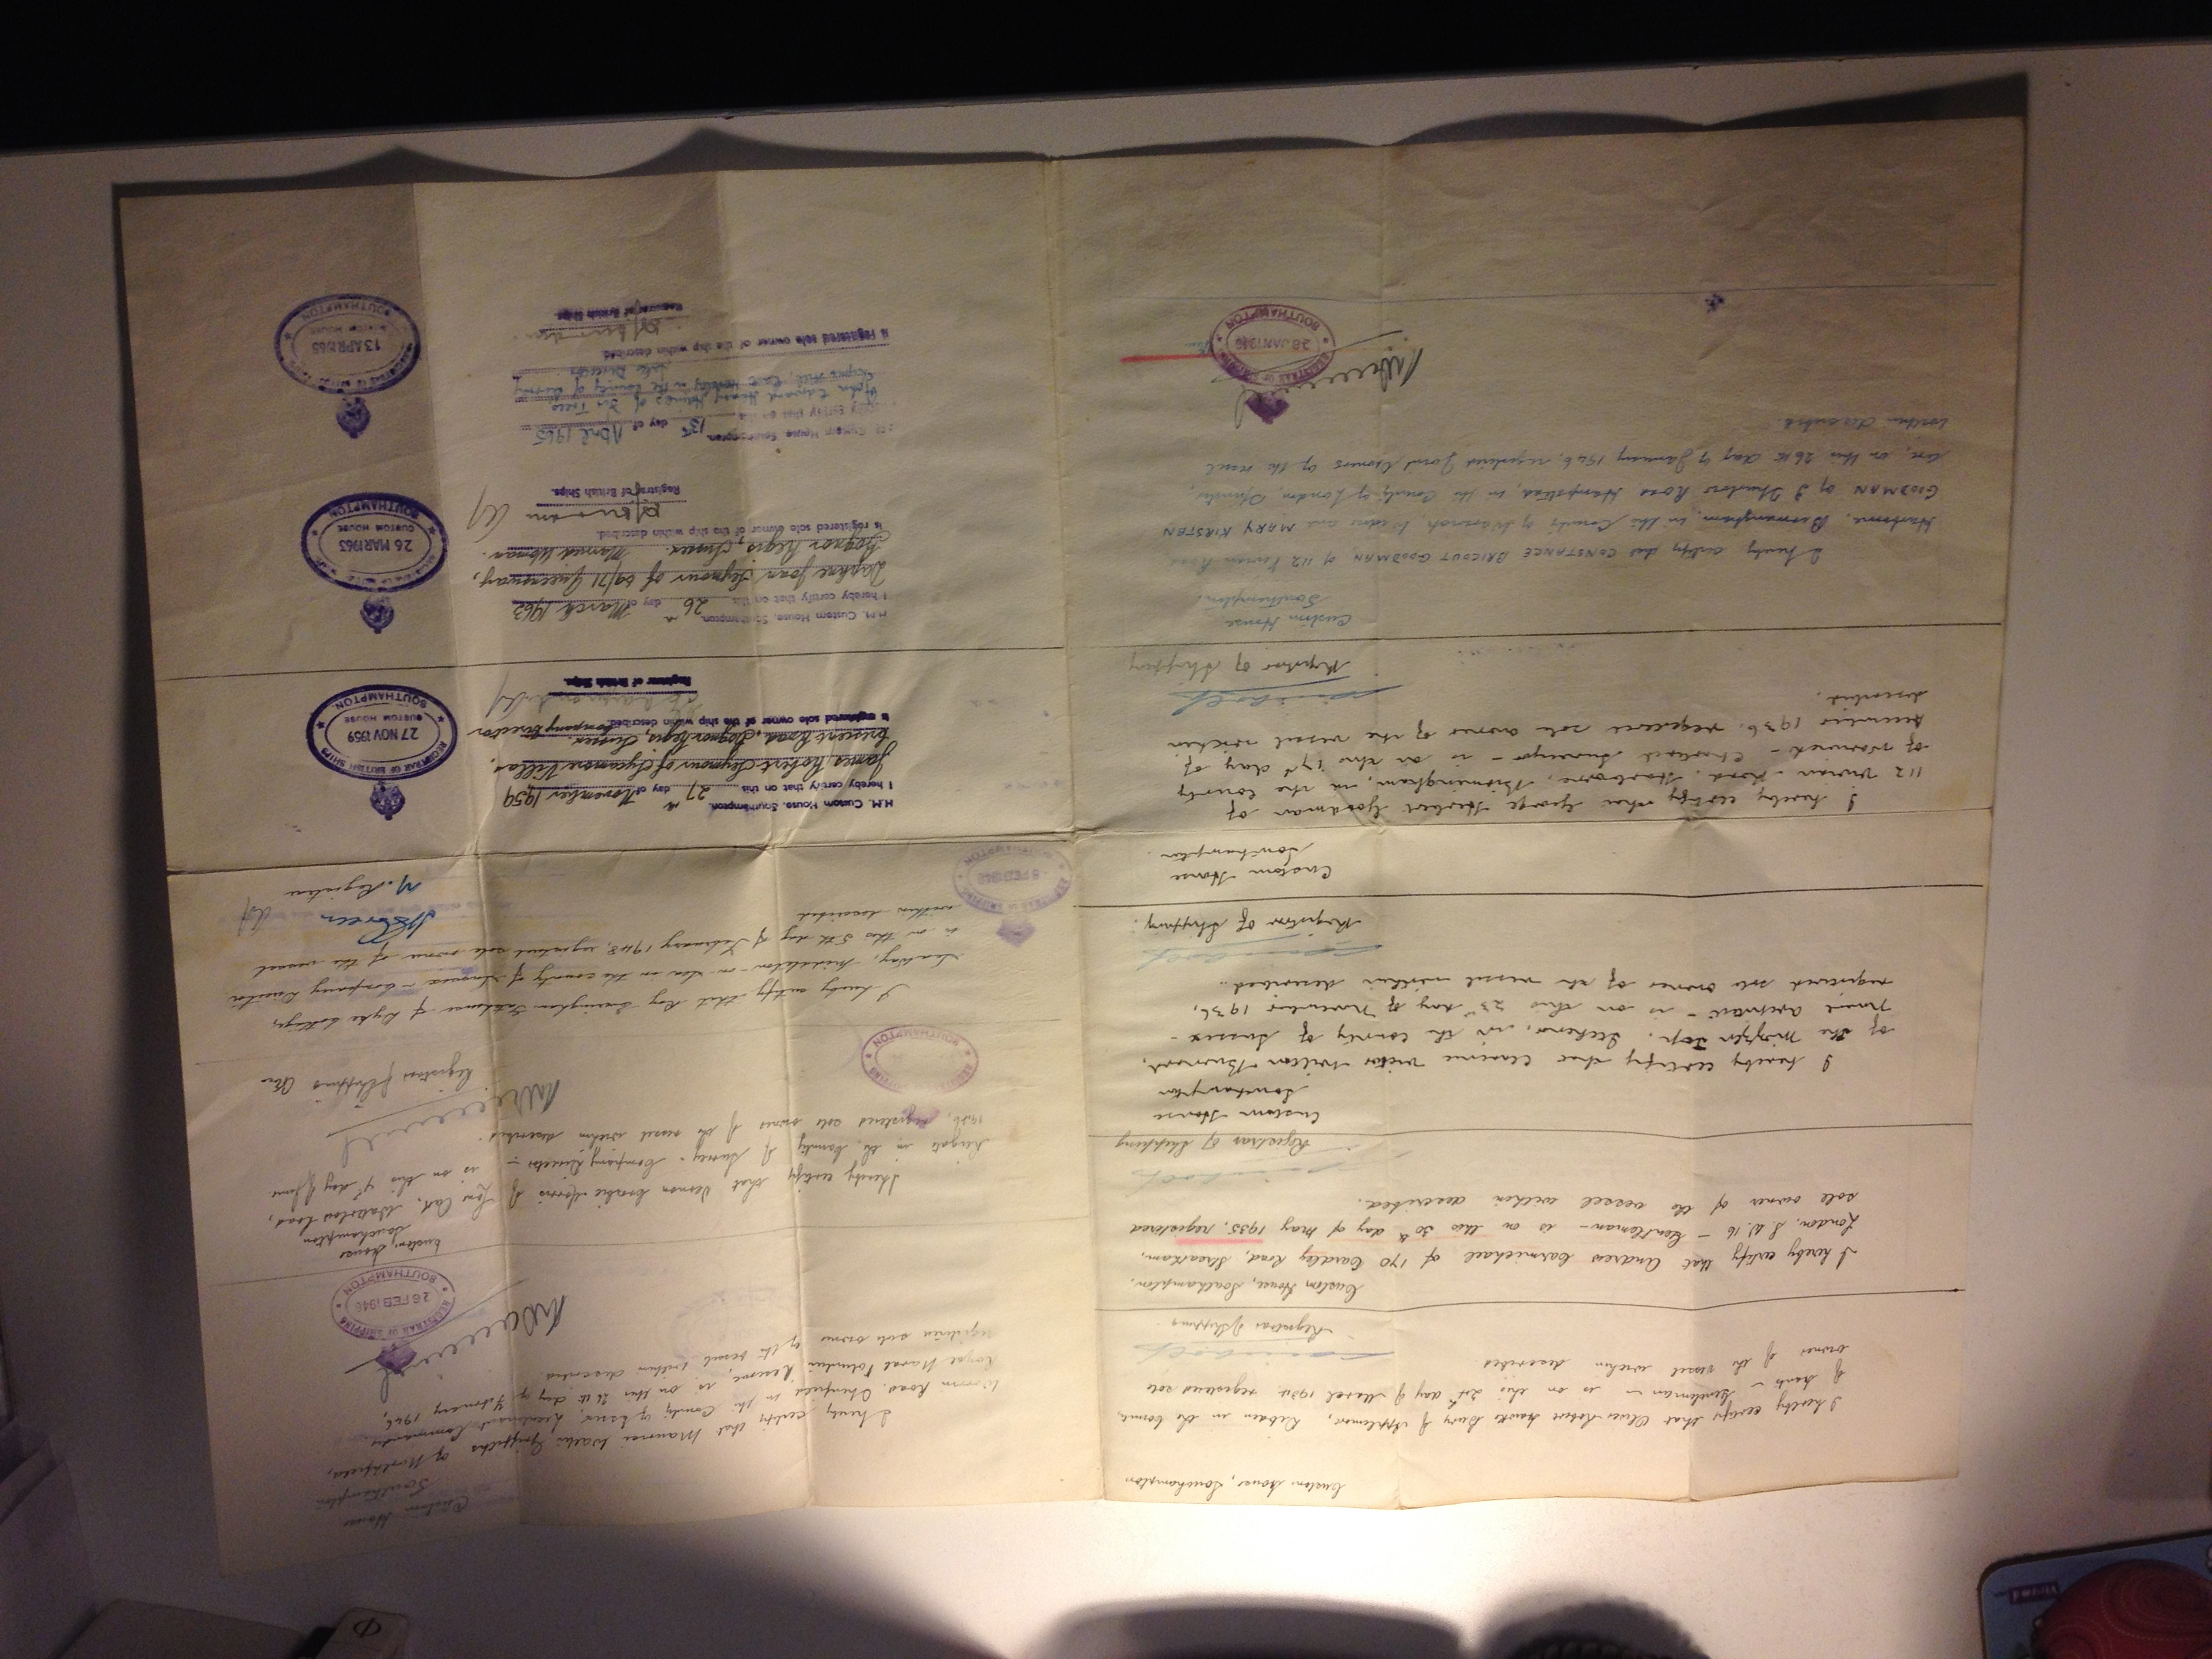 Custom House, Southampton
I hereby certify that Oliver Robert Hawke Bury of Appledore, in the County
of Kent – Gentleman – is on this 21st day of March 1934 registered sole
owner of the vessel within described
Registrar of Shipping
Custom House, Southampton.
I hereby certify that Andrew Carmichael of 170 Road, Streatham,
London, S.W. 16 – Gentleman – is on this 30th day of May 1935, registered
sole owner of the vessel within described.
Registrar of Shipping
Custom House
Southampton
I hereby certify that Clarence Victor William
of the Mizzen Top, in the county of Sussex –
is on this 23rd day of November 1936,
registered sole owner of the vessel within described.
Registrar of Shipping
Custom House
Southampton
I hereby certify that George Herbert Goodman of
112 Vivian Road, Harborne, Birmingham, in the county
of Warwick – Chartered Surveyor – is on this 17th day of
December 1936 registered sole owner of the vessel within
described.
Registrar of Shipping
Custom House
Southampton
I hereby certify that CONSTANCE BRICOUT GOODMAN of 112 Vivian Road
Harborne, Birmingham, in the County of Warwick, Widow and MARY KIRSTEN
GOODMAN of 2 Road Hampstead, in the County of London, Spinster,
are, on this 26th day of January 1946, registered Joint Owners of the vessel
within described.
REGISTRAR OF SHIPPING
28 JAN 1946
SOUTHAMPTON
Custom House
Southampton
I hereby certify that Maurice Walter Griffiths of Northfield,
Road, in the County of Essex, Lieutenant Commander
Royal Naval Volunteer Reserve, is on this 26th day of February 1946,
registered sole owner of the vessel within described
REGISTRAR OF SHIPPING
26 FEB 1946
SOUTHAMPTON
Custom House
Southampton
I hereby certify that Vernon Leslie Morris of Oak, Waterlow Road,
Reigate in the County of Surrey – Company Director – is on this day of June
1946, registered sole owner of the vessel within described.
Registrar of Shipping
REGISTRAR OF SHIPPING
SOUTHAMPTON
I hereby certify that Roy of Dyke Cottage,
Sea Way, Middleton-on-Sea in the county of Sussex – Company Director
is on this 5th day of February 1948, registered sole owner of the vessel
within described
REGISTRAR OF SHIPPING
5 FEB 1948
SOUTHAMPTON
H.M. Custom House, Southampton.
I hereby certify that on this 27th day of November 1959
James Robert Seymour of Sycamore Villas,
Crescent Road, Bognor Regis, Sussex Company Director
is registered sole owner of the ship within described.
Registrar of British Ships.
REGISTRAR OF BRITISH SHIPS
27 NOV 1959
CUSTOM HOUSE
SOUTHAMPTON
H.M. Custom House, Southampton.
I hereby certify that on this 26th day of March 1963
Daphne Joan Seymour of 69/71 Queensway,
Bognor Regis, Sussex. Married Woman.
is registered sole owner of the ship within described.
Registrar of British Ships.
REGISTRAR OF BRITISH SHIPS
26 MAR 1963
CUSTOM HOUSE
SOUTHAMPTON
H.M. Custom House, Southampton.
certify that on this 13th day of April 1965
John Edward Henry of Fir Trees
Hill, East Horsley in the County of Surrey
Director
is registered sole owner of the ship within described.
Registrar of British Ships.
REGISTRAR OF BRITISH SHIPS
13 APR 1965
CUSTOM HOUSE
SOUTHAMPTON